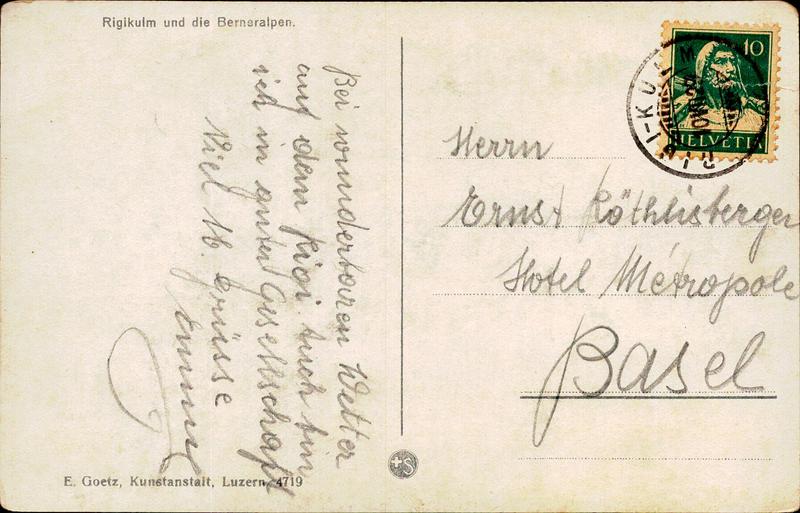 Rigikulm und die Berneralpen.
Bei wunderbaren Wetter
auf dem Rigi. Auch bin
ich in guter Gesellschaft
Viel lb. Grüsse
10
HELVETIA
RIGI-KULM
Herrn
Ernst Röthlisberger
Hotel Métropole
Basel
S
E. Goetz, Kunstanstalt, Luzern 4719